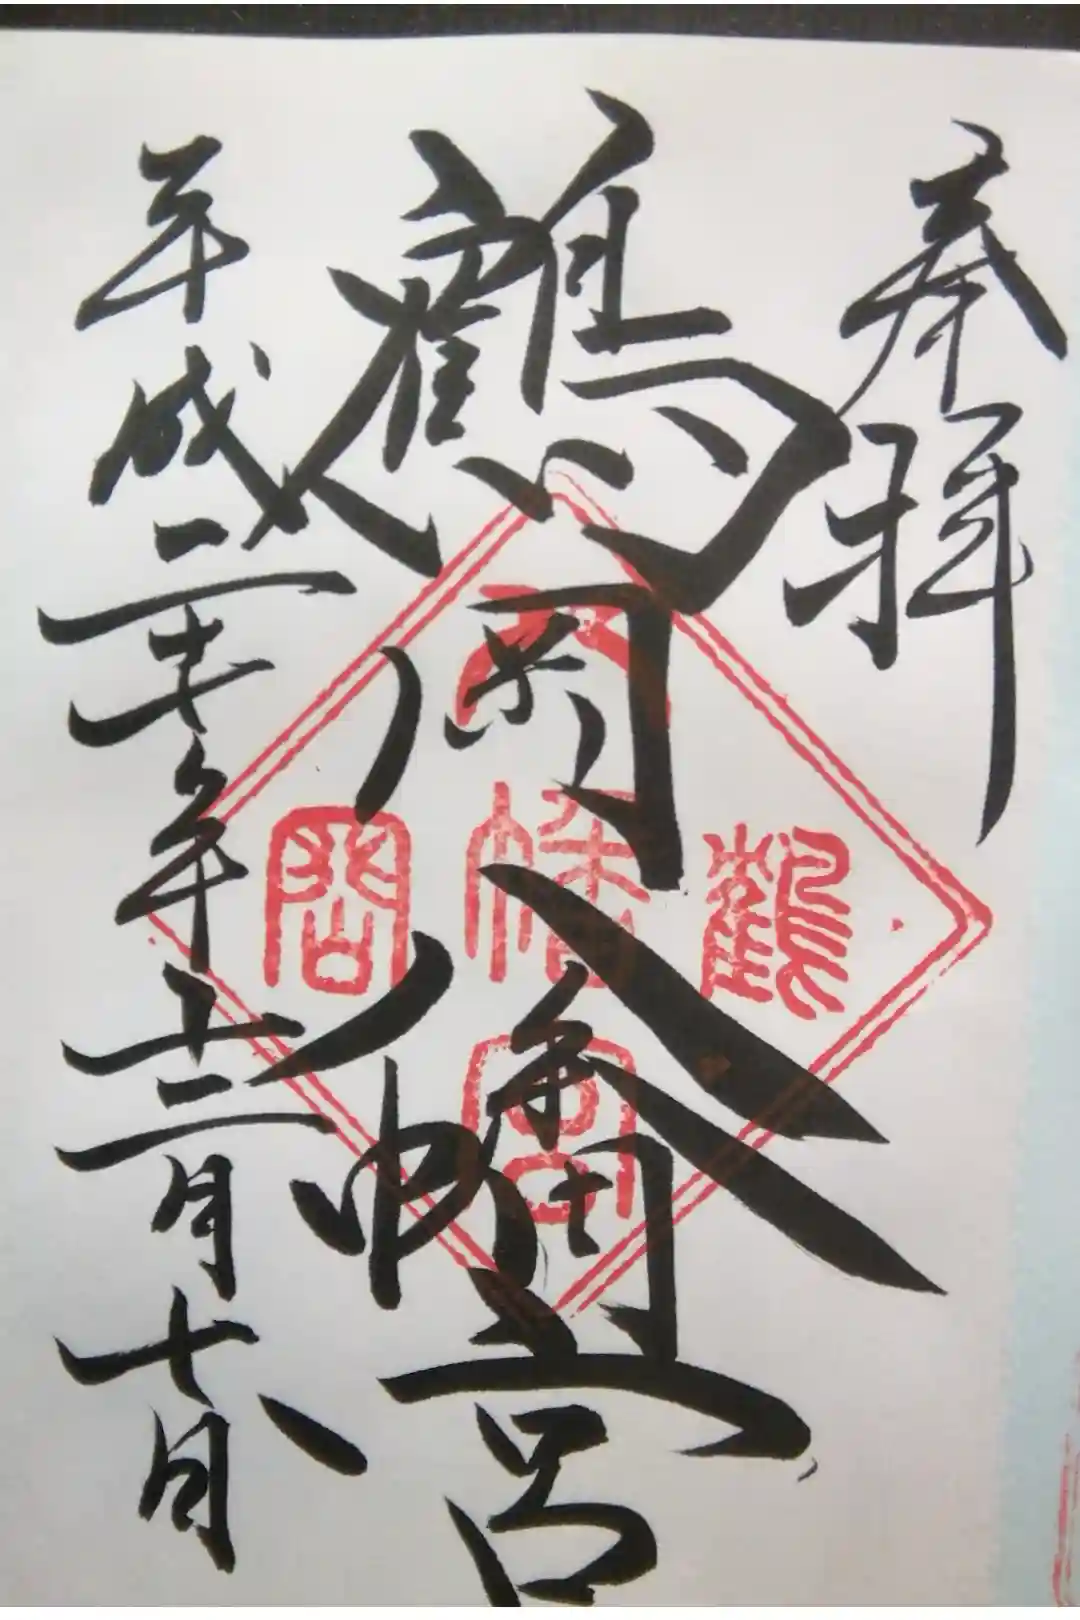 奉拝
鶴岡八幡宮
平成二十七年十二月七日
鶴
八幡宮
岡